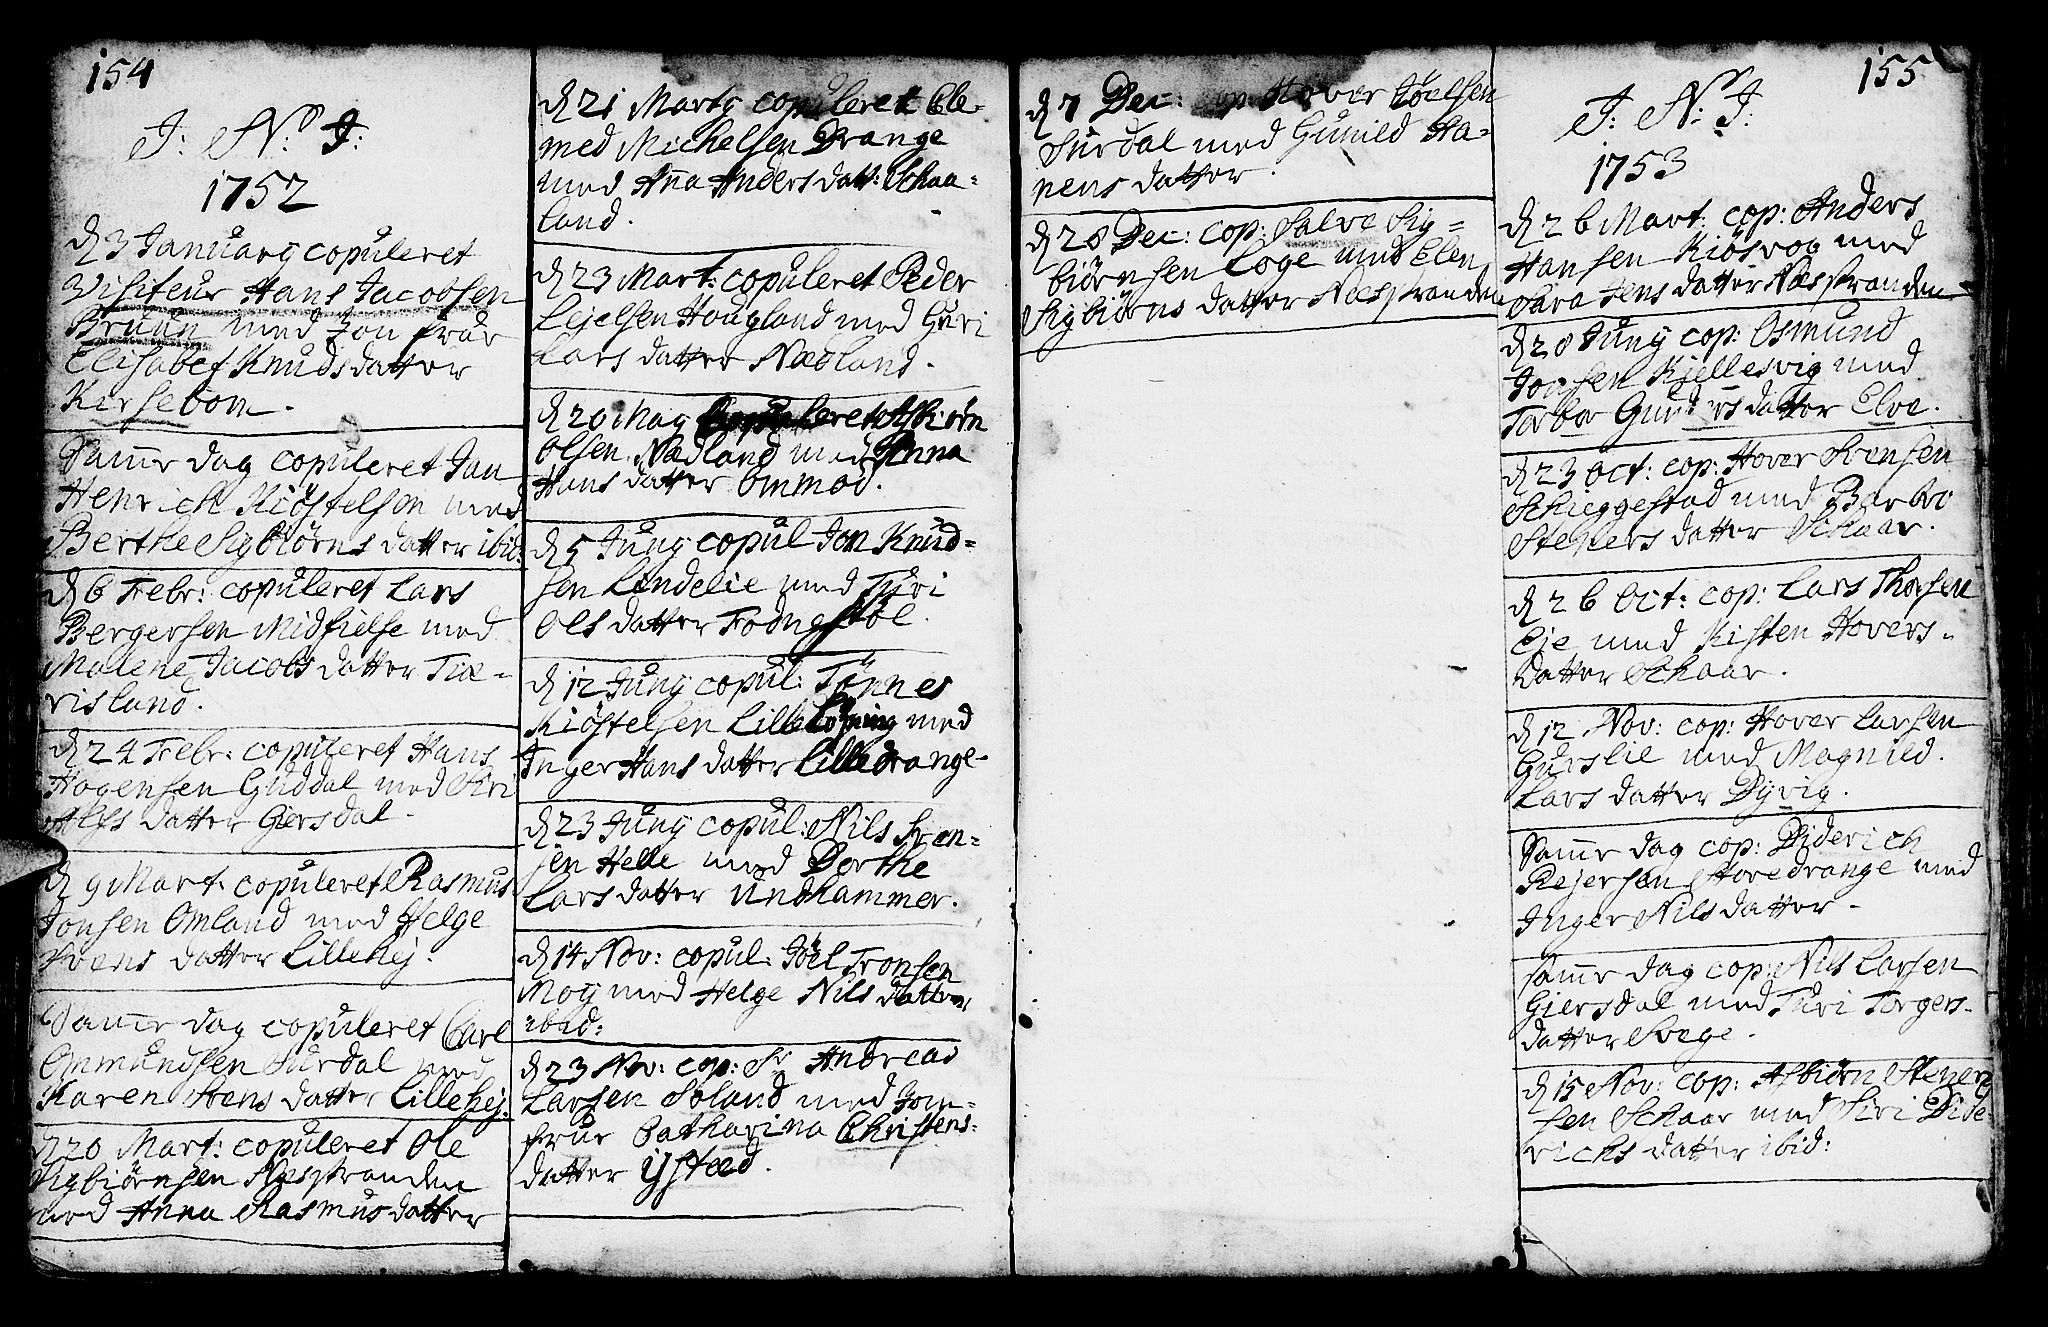 154
J: N: J:
1752
d 3 Januarij copuleret
Visiteur Hans Jacobsen
Bruun med Jomfrue
Elisabet Knudsdatter
Kirsebom.
Samme dag copuleret Jan
Henrich Kiöstelsøn med
Berthe Sigbiörns datter ibid:
d 6 Febr: copuleret Lars
Bergersen Midfielse med
Malene Jacobs datter Tiæ-
risland.
d 24 Febr: copuleret Hans
Hogensen Guddal med Siri
Alfs datter Giersdal.
d 9 Mart: copuleret Rasmus
Jonsen Omland med Helge
Svens datter Lillehej.
Samme dag copuleret Carl
Onmundsen Surdal med
Karen Stens datter Lillehej.
d 20 Mart: copuleret Ole
Sigbiörnsen Næsstranden
med Anna Rasmus datter
d 21 Martij copuleret Cle-
med Michelsen Drange
med Anna Anders datt: Schaa-
land.
d 23 Mart: copuleret Peder
Lejelsen Hougland med Guri
Lars datter Nædland.
d 20 Maij copuleret Asbiørn
Olsen Nædland med Anna
Hans datter Ommod.
d 5 Junij copul Jon Knud-
sen Lindelie med Turi
Ols datter Fodngstöl.
d 12 Junij copul: Tönnes
Kiöstelsen Lille Löping med
Inger Hans datter Lilledrange-
d 23 Junij copul: Nils Sven-
sen Helle med Dorthe
Lars datter Undhammer.
d 14 Nov: copul: Jöel Tronsen
Moij med Helge Nils datter
ibid:
d 23 Nov: cop: Sr Andreas
Larsen Soland med Jom-
frue Catharina Christens-
datter Ystæd.
d 7 Dec: cop: Hover Jöelsen
Surdal med Gunild Ha-
nens datter.
d 28 Dec: cop: Salve Sig-
biörnsen Loge med Elen
Sigbiörns datter Næsstranden
155
J: N: J:
1753
d 26 Mart: cop: Anders
Hansen Kiösvog med
Sara Jens datter Næsstranden
d 28 Junij cop: Osmund
Jonsen Kjellesvig med
Torbor Gunders datter Elve.
d 23 Oct: cop: Hover Svensen
Schieggestad med Barbro
Steners datter Schaar.
d 26 Oct: cop: Lars Thorsen
Eje med Kisten Hovers-
datter Schaar.
d 12 Nov: cop: Hover Larsen
Gurslie med Magnild
Lars datter Dyvig.
Samme dag cop: Diderich
Rejersen Hovedrange med
Inger Nils datter-
Samme dag cop: Nils Larsen
Giersdal med Turi Torgers-
datter Svege.
d 15 Nov: cop: Asbiörn Stener-
sen Schaar med Siri Dide-
richs datter ibid: